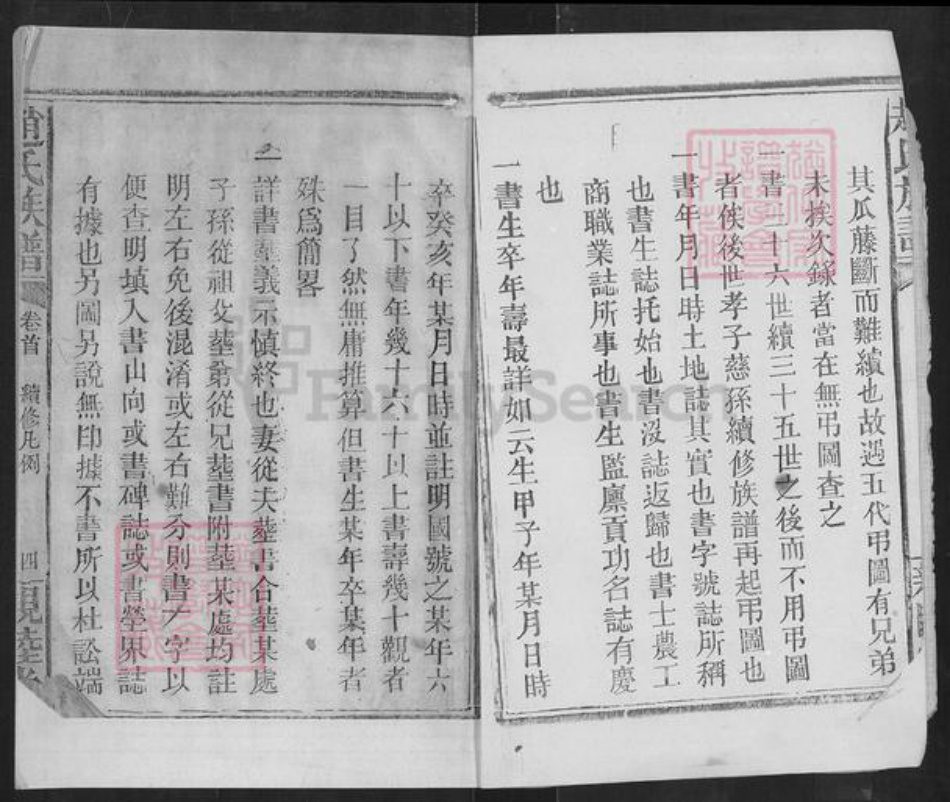 其瓜藤斷而難續也故遇五代弔圖有兄弟
未挨次錄者當在無弔圖查之
一書二十六世續三十五世之後而不用弔圖
者俟後世孝子慈孫續修族譜再起弔圖也
一書年月日時土地誌其實也書字號誌所稱
也書生誌托始也書沒誌返歸也書士農工
商職業誌所事也書生監廩貢功名誌有慶
也
一書生卒年壽最詳如云生甲子年某月日時
卒癸亥年某月日時並註明國號之某年六
十以下書年幾十六十以上書壽幾十觀者
一目了然無庸推算但書生某年卒某年者
殊爲簡畧
一詳書塟義示慎終也妻從夫塟書合塟某處
子孫從祖父塟弟從兄塟書附塟某處均註
明左右免後混淆或左右難分則書六字以
便查明填入書山向或書碑誌或書塋界誌
有據也另圖另說無印據不書所以杜訟端
趙氏族譜
卷首
續修凡例
四
FamilySearch